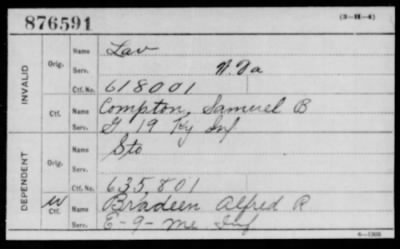 876591
(3—H—4)
INVALID
Orig.
Name Law
Serv. W. Va
Ctf. No. 618001
Ctf.
Name Compton, Samuel B
Serv. G 19 Ky Inf
DEPENDENT
Orig.
Name Sto
Serv.
Ctf. No. 635,801
W
Ctf.
Name Bradeen Alfred R
Serv. E-9-Me Inf